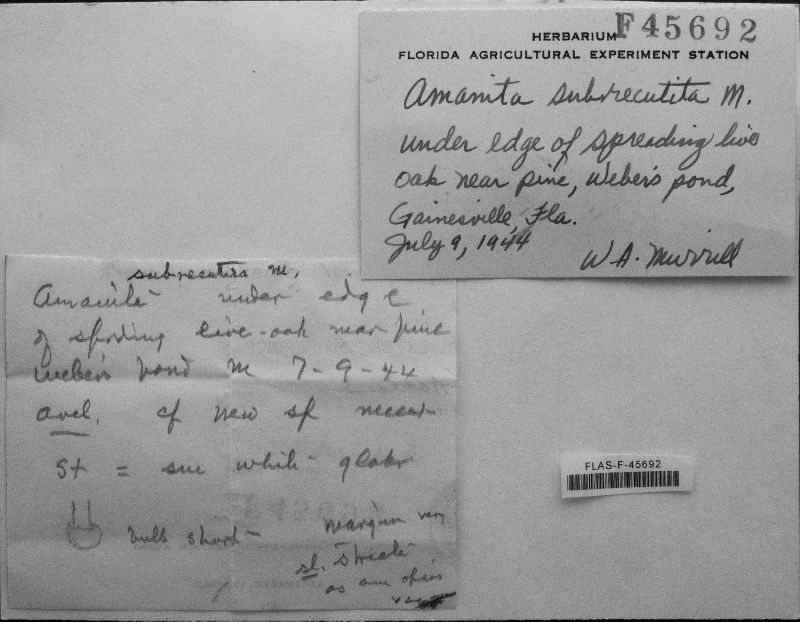 HERBARIUM F45692
FLORIDA AGRICULTURAL EXPERIMENT STATION
Amanita subrecutita M.
under edge of spreading live
oak near pine, Weber's pond,
Gainesville, Fla.
July 9, 1944
W. A. Murrill
subrecutita M.
Amanita under edge
of sprding live-oak near pine
Weber's pond M 7-9-44
avel. cf new sp recent
St = sm white glabr
bulb short
margin very
sl. striate
as am
FLAS-F-45692